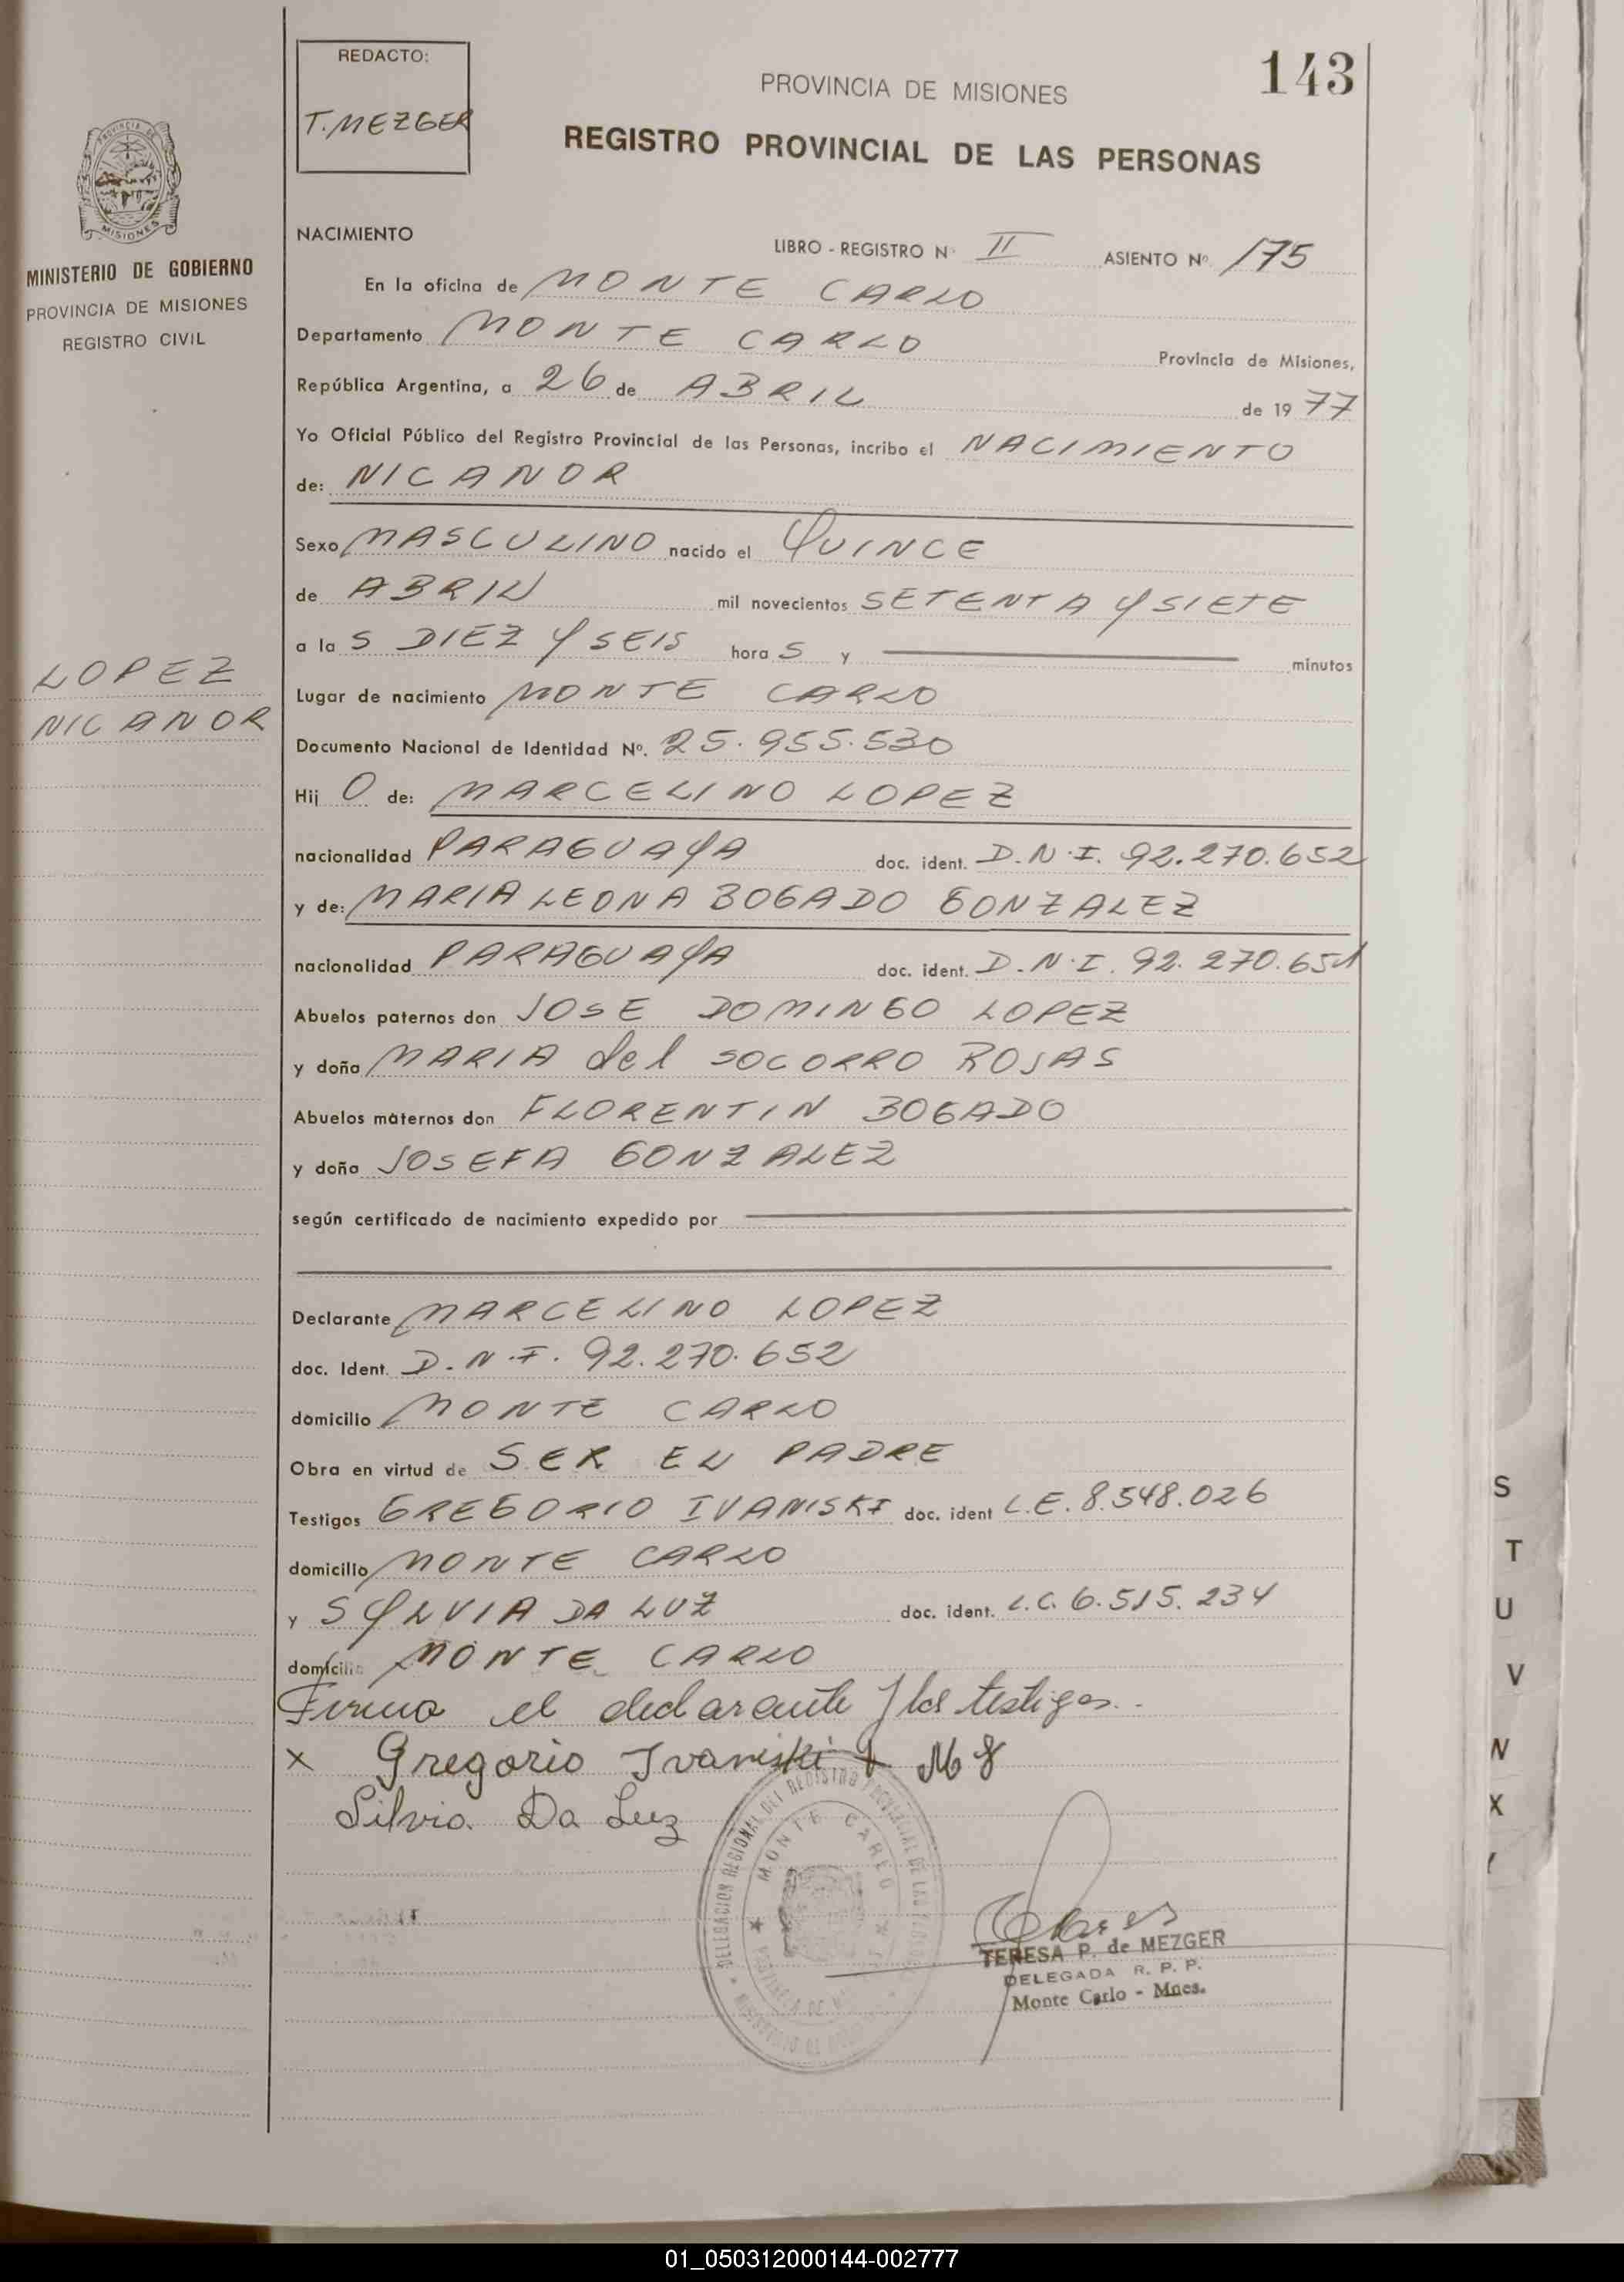 REDACTO:
T. MEZGER
143
PROVINCIA DE MISIONES
REGISTRO PROVINCIAL DE LAS PERSONAS
PROVINCIA DE
MISIONES
MINISTERIO DE GOBIERNO
PROVINCIA DE MISIONES
REGISTRO CIVIL
LOPEZ
NICANOR
NACIMIENTO
LIBRO - REGISTRO Nº II ASIENTO Nº 175
En la oficina de MONTE CARLO
Departamento MONTE CARLO Provincia de Misiones,
República Argentina, a 26 de ABRIL de 1977
Yo Oficial Público del Registro Provincial de las Personas, incribo el NACIMIENTO
de: NICANOR
Sexo MASCULINO nacido el QUINCE
de ABRIL mil novecientos SETENTA Y SIETE
a la S DIEZ Y SEIS hora S y minutos
Lugar de nacimiento MONTE CARLO
Documento Nacional de Identidad Nº. 25.955.530
Hij O de: MARCELINO LOPEZ
nacionalidad PARAGUAYA doc. ident. D.N.I. 92.270.652
y de: MARIA LEONA BOGADO GONZALEZ
nacionalidad PARAGUAYA doc. ident. D.N.I. 92.270.651
Abuelos paternos don JOSE DOMINGO LOPEZ
y doña MARIA del SOCORRO ROJAS
Abuelos maternos don FLORENTIN BOGADO
y doña JOSEFA GONZALEZ
según certificado de nacimiento expedido por
Declarante MARCELINO LOPEZ
doc. Ident. D.N.I. 92.270.652
domicilio MONTE CARLO
Obra en virtud de SER EL PADRE
Testigos GREGORIO IVANISKI doc. ident L.E. 8.548.026
domicilio MONTE CARLO
y SYLVIA DA LUZ doc. ident. L.C. 6.515.234
domicilio MONTE CARLO
Firma el declarante y los testigos.-
x Gregorio Ivaniski x
Silvia Da Luz
DELEGACION REGIONAL DEL REGISTRO PROVINCIAL DE LAS
MONTE CARLO
TERESA P. de MEZGER
DELEGADA R. P. P.
Monte Carlo - Mnes.
S
T
U
V
W
X
Y
01_050312000144-002777